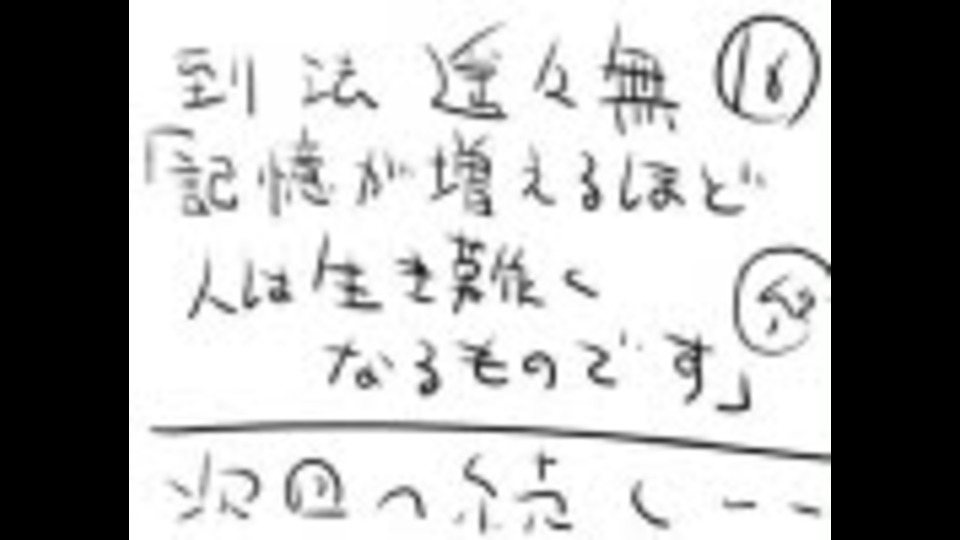 到法遙々無 18
「記憶が増えるほど
人は生き難く
なるものです」
次回へ続く--